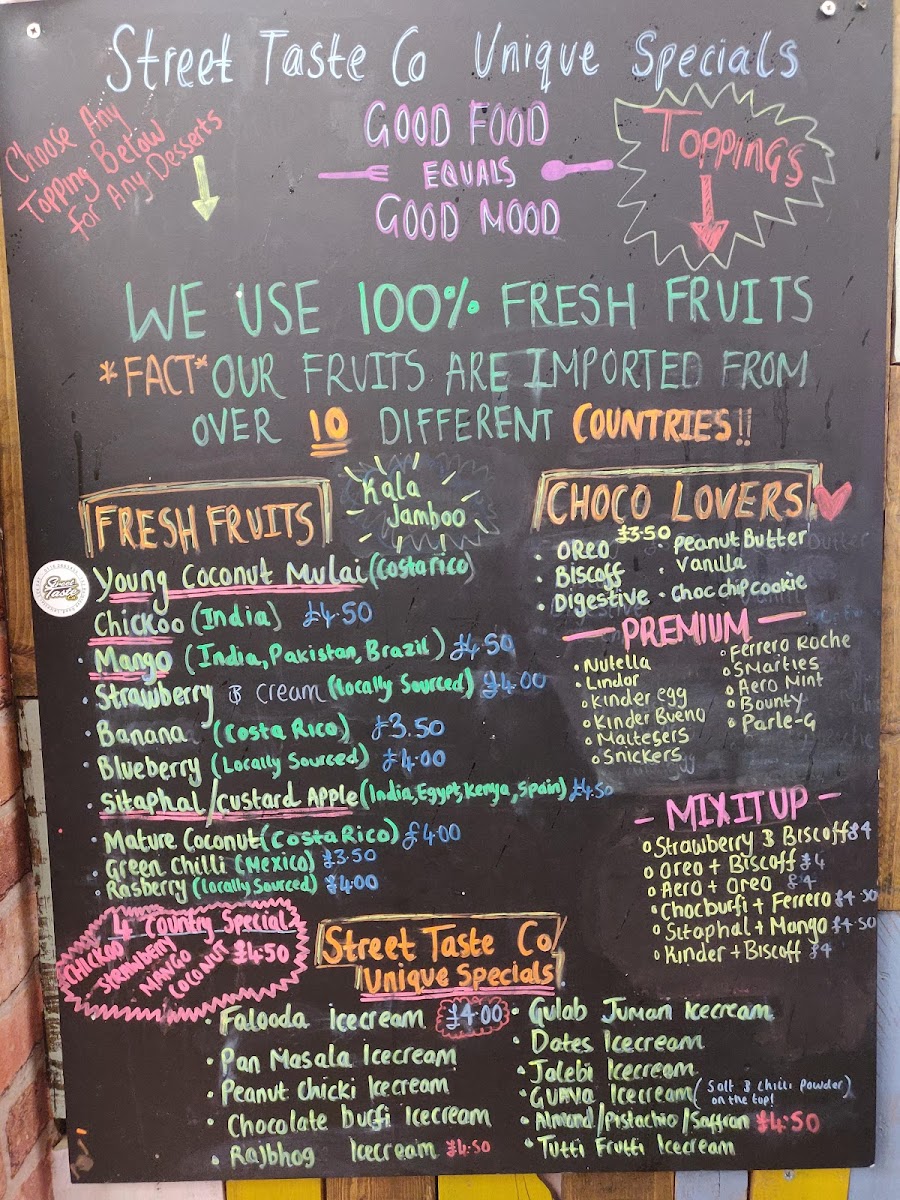 Street Taste Co Unique Specials
Choose Any
Topping Below
for Any Desserts
GOOD FOOD
EQUALS
GOOD MOOD
TOPPINGS
WE USE 100% FRESH FRUITS
*FACT* OUR FRUITS ARE IMPORTED FROM
OVER 10 DIFFERENT COUNTRIES!!
FRESH FRUITS
Kala
Jamboo
Street
Taste
Young Coconut Mulai (Costa rico)
Chickoo (India) £4.50
Mango (India, Pakistan, Brazil) £4.50
Strawberry & cream (Locally Sourced) £4.00
Banana (Costa Rico) £3.50
Blueberry (Locally Sourced) £4.00
Sitaphal/Custard Apple (India, Egypt, Kenya, Spain) £4.50
Mature Coconut (Costa Rico) £4.00
Green Chilli (Mexico) £3.50
Rasberry (Locally Sourced) £4.00
4 Country Special
CHICKOO
Strawberry
MANGO
COCONUT £4.50
CHOCO LOVERS
£3.50
• OREO • Peanut Butter
• Biscoff • Vanilla
• Digestive • Choc chip cookie
PREMIUM
• Nutella
• Lindor
• Kinder egg
• Kinder Bueno
• Maltesers
• Snickers
• Ferrero Roche
• Smarties
• Aero Mint
• Bounty
• Parle-G
- MIX IT UP -
• Strawberry & Biscoff £4
• Oreo + Biscoff £4
• Aero + Oreo £4
• Chocburfi + Ferrero £4.50
• Sitaphal + Mango £4.50
• Kinder + Biscoff £4
Street Taste Co
Unique Specials
• Falooda icecream £4.00
• Pan Masala Icecream
• Peanut Chicki Icecream
• Chocolate burfi Icecream
• Rajbhog Icecream £4.50
• Gulab Juman icecream
• Dates Icecream
• Jalebi Icecream
• Guava Icecream (Salt & chilli Powder)
on the top!
• Almond/Pistachio/Saffron £4.50
• Tutti Frutti Icecream